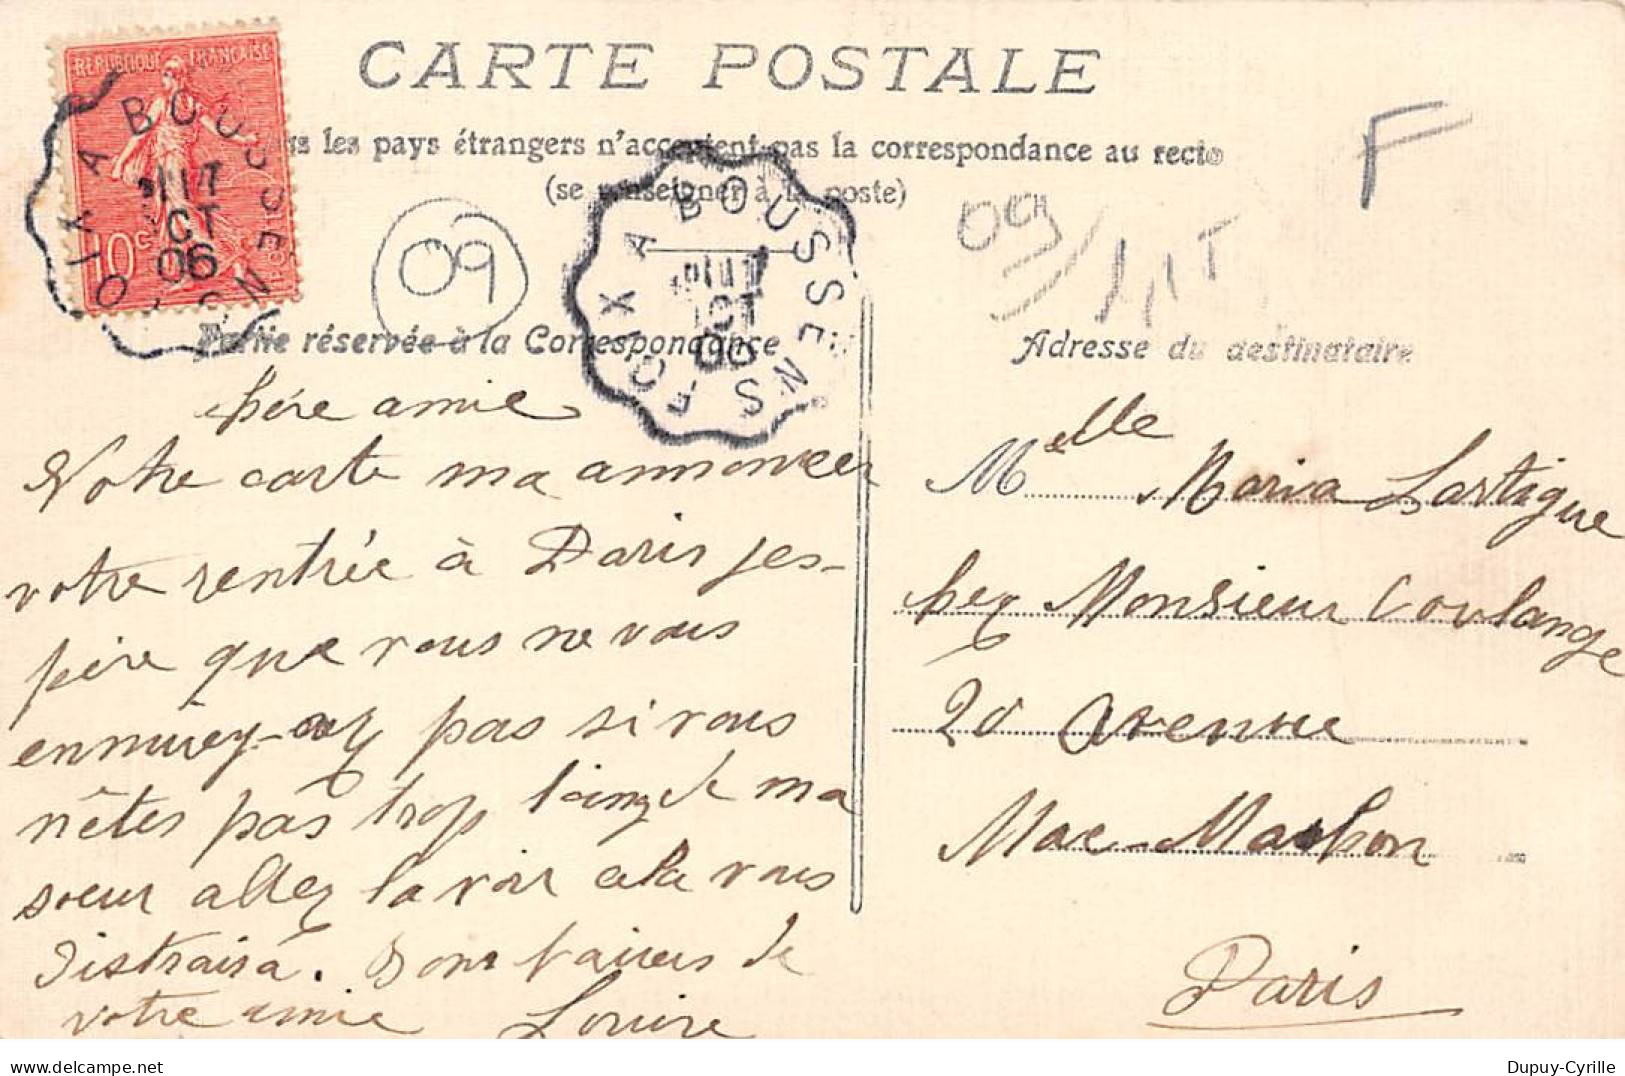 CARTE POSTALE
les pays étrangers n'acceptent pas la correspondance au recto
(se renseigner à la poste)
REPUBLIQUE FRANÇAISE
10c
POSTES
FOIX A BOUSSENS
OCT
06
FOIX A BOUSSENS
OCT
06
09
09
F
Partie réservée à la Correspondance
Adresse du destinataire
chère amie
Votre carte ma annoncer
votre rentrée à Paris jes-
père que vous ne vous
ennuiey pas si vous
n'êtes pas trop loing de ma
soeur allez la voir cela vous
distraira. Bons baisers de
votre amie Louise
Melle Maria Lartigue
chez Monsieur Coulange
20 avenue
Mac-Mahon
Paris
Dupuy-Cyrille